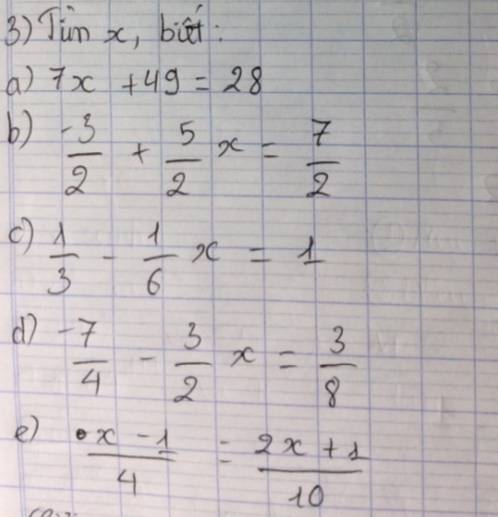 3) Tìm x, biết:
a) 7x + 49 = 28
b) -3/2 + 5/2 x = 7/2
c) 1/3 - 1/6 x = 1
d) -7/4 - 3/2 x = 3/8
e) x - 1/4 = 2x + 1/10